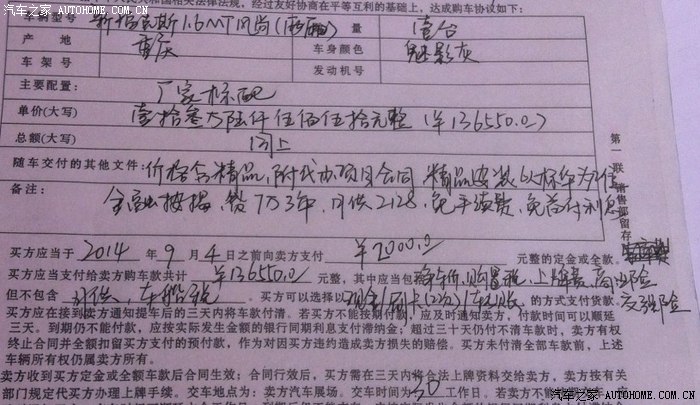 汽车之家 AUTOHOME.COM.CN 相关法律法规,经过友好协商在平等互利的基础上,达成购车协议如下:
新福克斯1.6MT风尚(两厢) 量 壹台
产 地 重庆 车身颜色 魅影灰
车架号 发动机号
主要配置: 厂家标配
单价(大写) 壹拾叁万陆仟伍佰伍拾元整(¥136550.0)
总额(大写) 同上
随车交付的其他文件:价格含精品,附代办项目合同
备注: 金融按揭,贷7万3年,月供2128,免手续费,免首付利息
第一联 销售部留存
买方应当于 2014 年 9 月 4 日之前向卖方支付 ¥2000.0 元整的定金或全款。
买方应当支付给卖方购车款共计 ¥136550.0 元整,其中应当包括 购置税,上牌费,商业险 交强险
但不包含 月供,车船税 。买方可以选择以 现金/刷卡 的方式支付货款,
买方应在接到卖方通知提车后的三天内将车款付清。若买方不能按期付款,应及时通知卖方,付款时间可以顺延
三天。到期仍不能付清,应按实际发生金额的银行同期利息支付滞纳金;超过三十天仍付不清车款时,卖方有权
终止合同并全额扣留买方支付的预付款,作为对因买方违约造成卖方损失的赔偿。买方未付清全部车款前,上述
车辆所有权仍属卖方所有。
卖方收到买方定金或全额车款后合同生效;合同行效后,买方需在三天内将合法上牌资料交给卖方,卖方按有关
部门规定代买方办理上牌手续。交车地点为:卖方汽车展场。交车时间为 30 工作日。若卖方
汽车之家 AUTOHOME.COM.CN